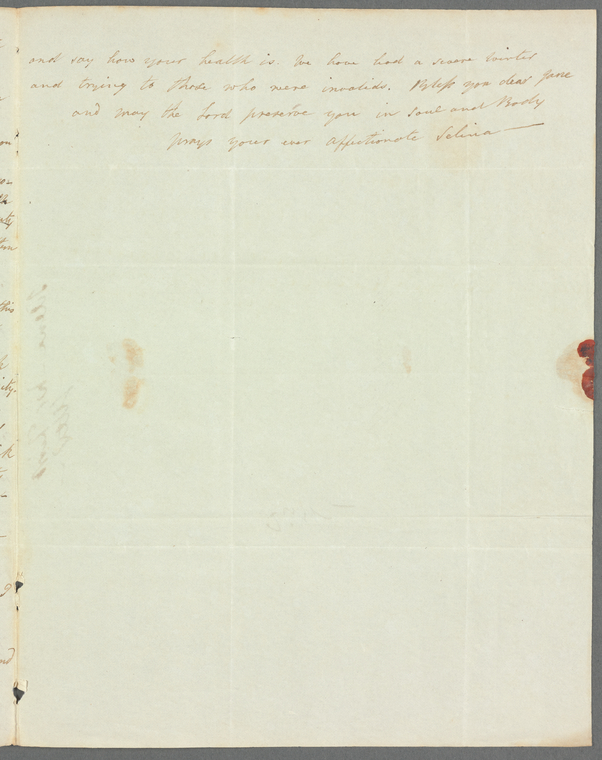 and say how your health is. We have had a severe winter
and trying to those who were invalids. Bless you dear Jane
and may the Lord preserve you in soul and Body
prays your ever affectionate Selina